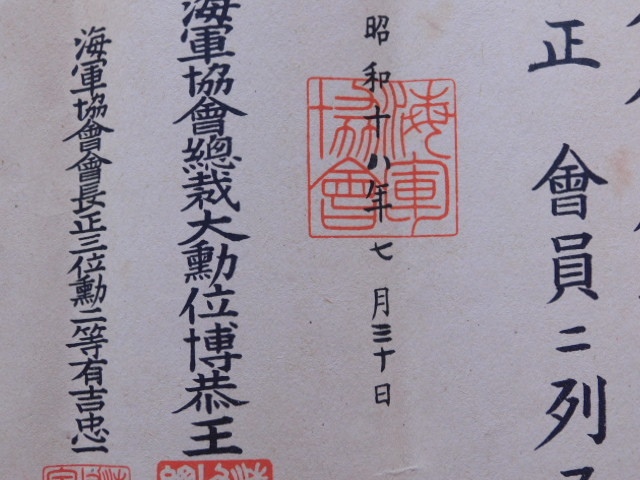 正會員ニ列
昭和十八年七月三十日
海軍協會
海軍協會總裁大勳位博恭王
海軍協會會長正三位勳二等有吉忠一